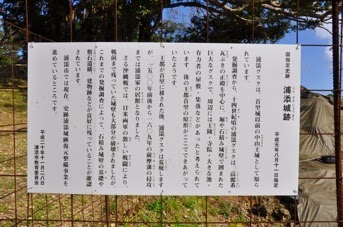 国指定史跡
浦添城跡
平成元年八月十一日指定
浦添グスクは、首里城以前の中山王城として知ら
れています。
発掘調査から、十四世紀頃の浦添グスクは、高麗系
瓦ぶきの正殿を中心に、堀や石積み城壁で囲まれた
巨大なグスクで、周辺には王陵・寺院・大きな池・
有力者の屋敷・集落などがあったと考えられて
います。後の王都首里の原形がここでできあがって
いたようです。
王都が首里に移された後、浦添グスクは荒廃します
が、一五二〇年前後から一六〇九年の薩摩藩の侵攻
までは浦添家の居館となりました。
沖縄戦では、日米両軍の激しい戦闘により、
戦前まで残っていた城壁も大部分が破壊されましたが、
これまでの発掘調査によって、石積み城壁の基礎や
敷石遺構、建物跡などが良好に残っていることが確認
されています。
浦添市では現在、史跡浦添城跡復元整備事業を
進めているところです。
平成二十年十一月二八日
浦添市教育委員会